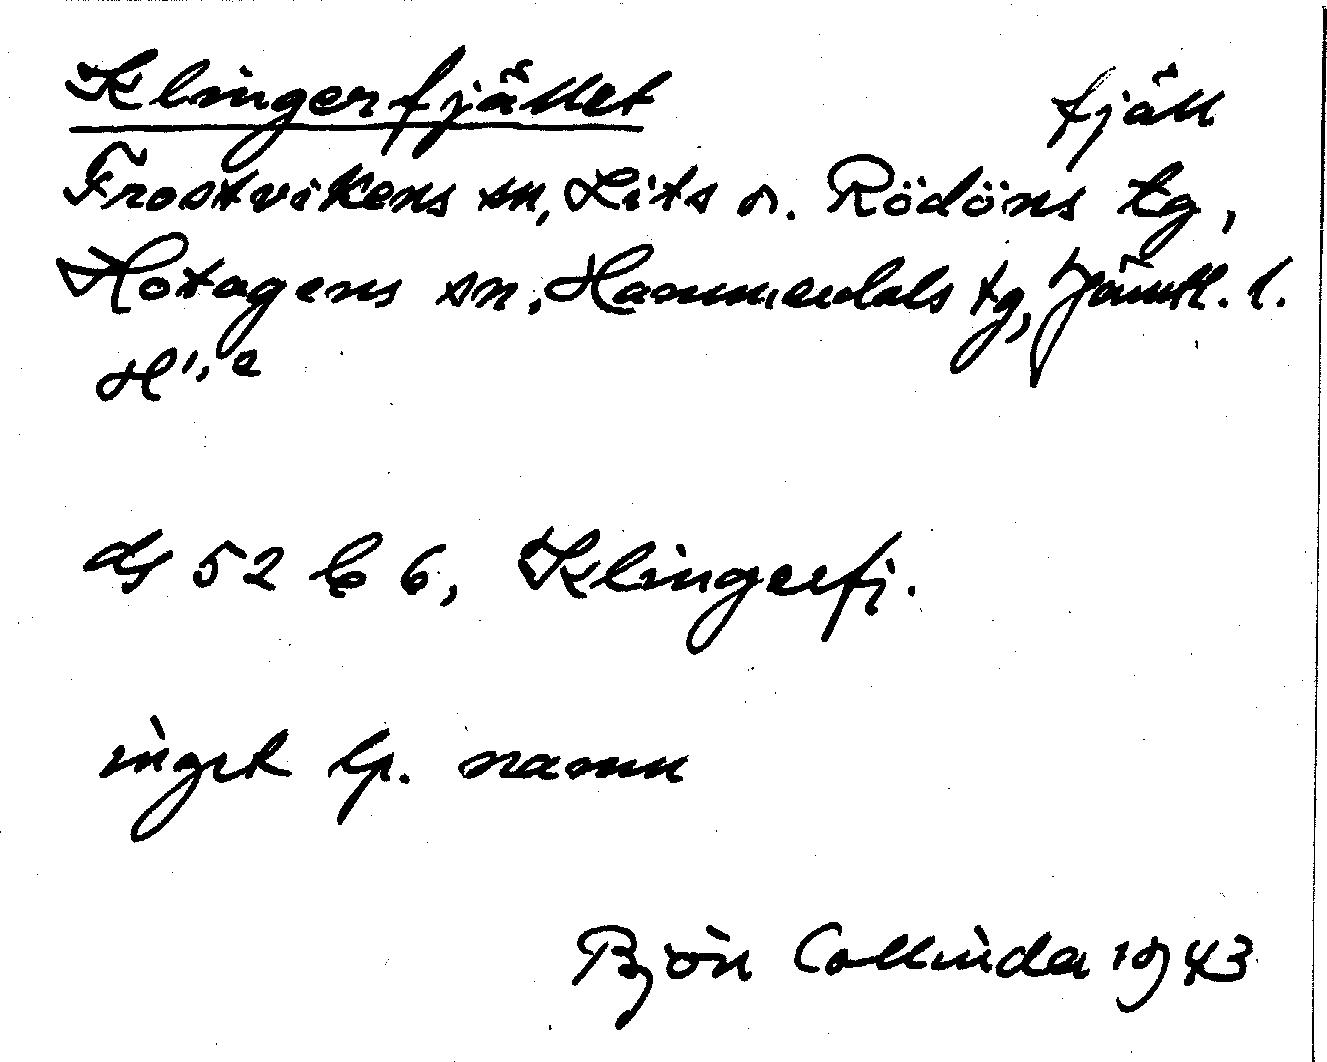 Klingerfjället fjäll
Frostvikens sn, Lits o. Rödöns tg,
Hotagens sn, Hammerdals tg, Jämtl. l.
ds 52 C 6, Klingerfj.
inget lp. namn
Björn Collinder 1943